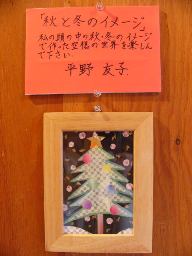 「秋と冬のイメージ」
私の頭の中の秋・冬のイメージ
で作った空想の世界を楽しんで
下さい
平野 友子